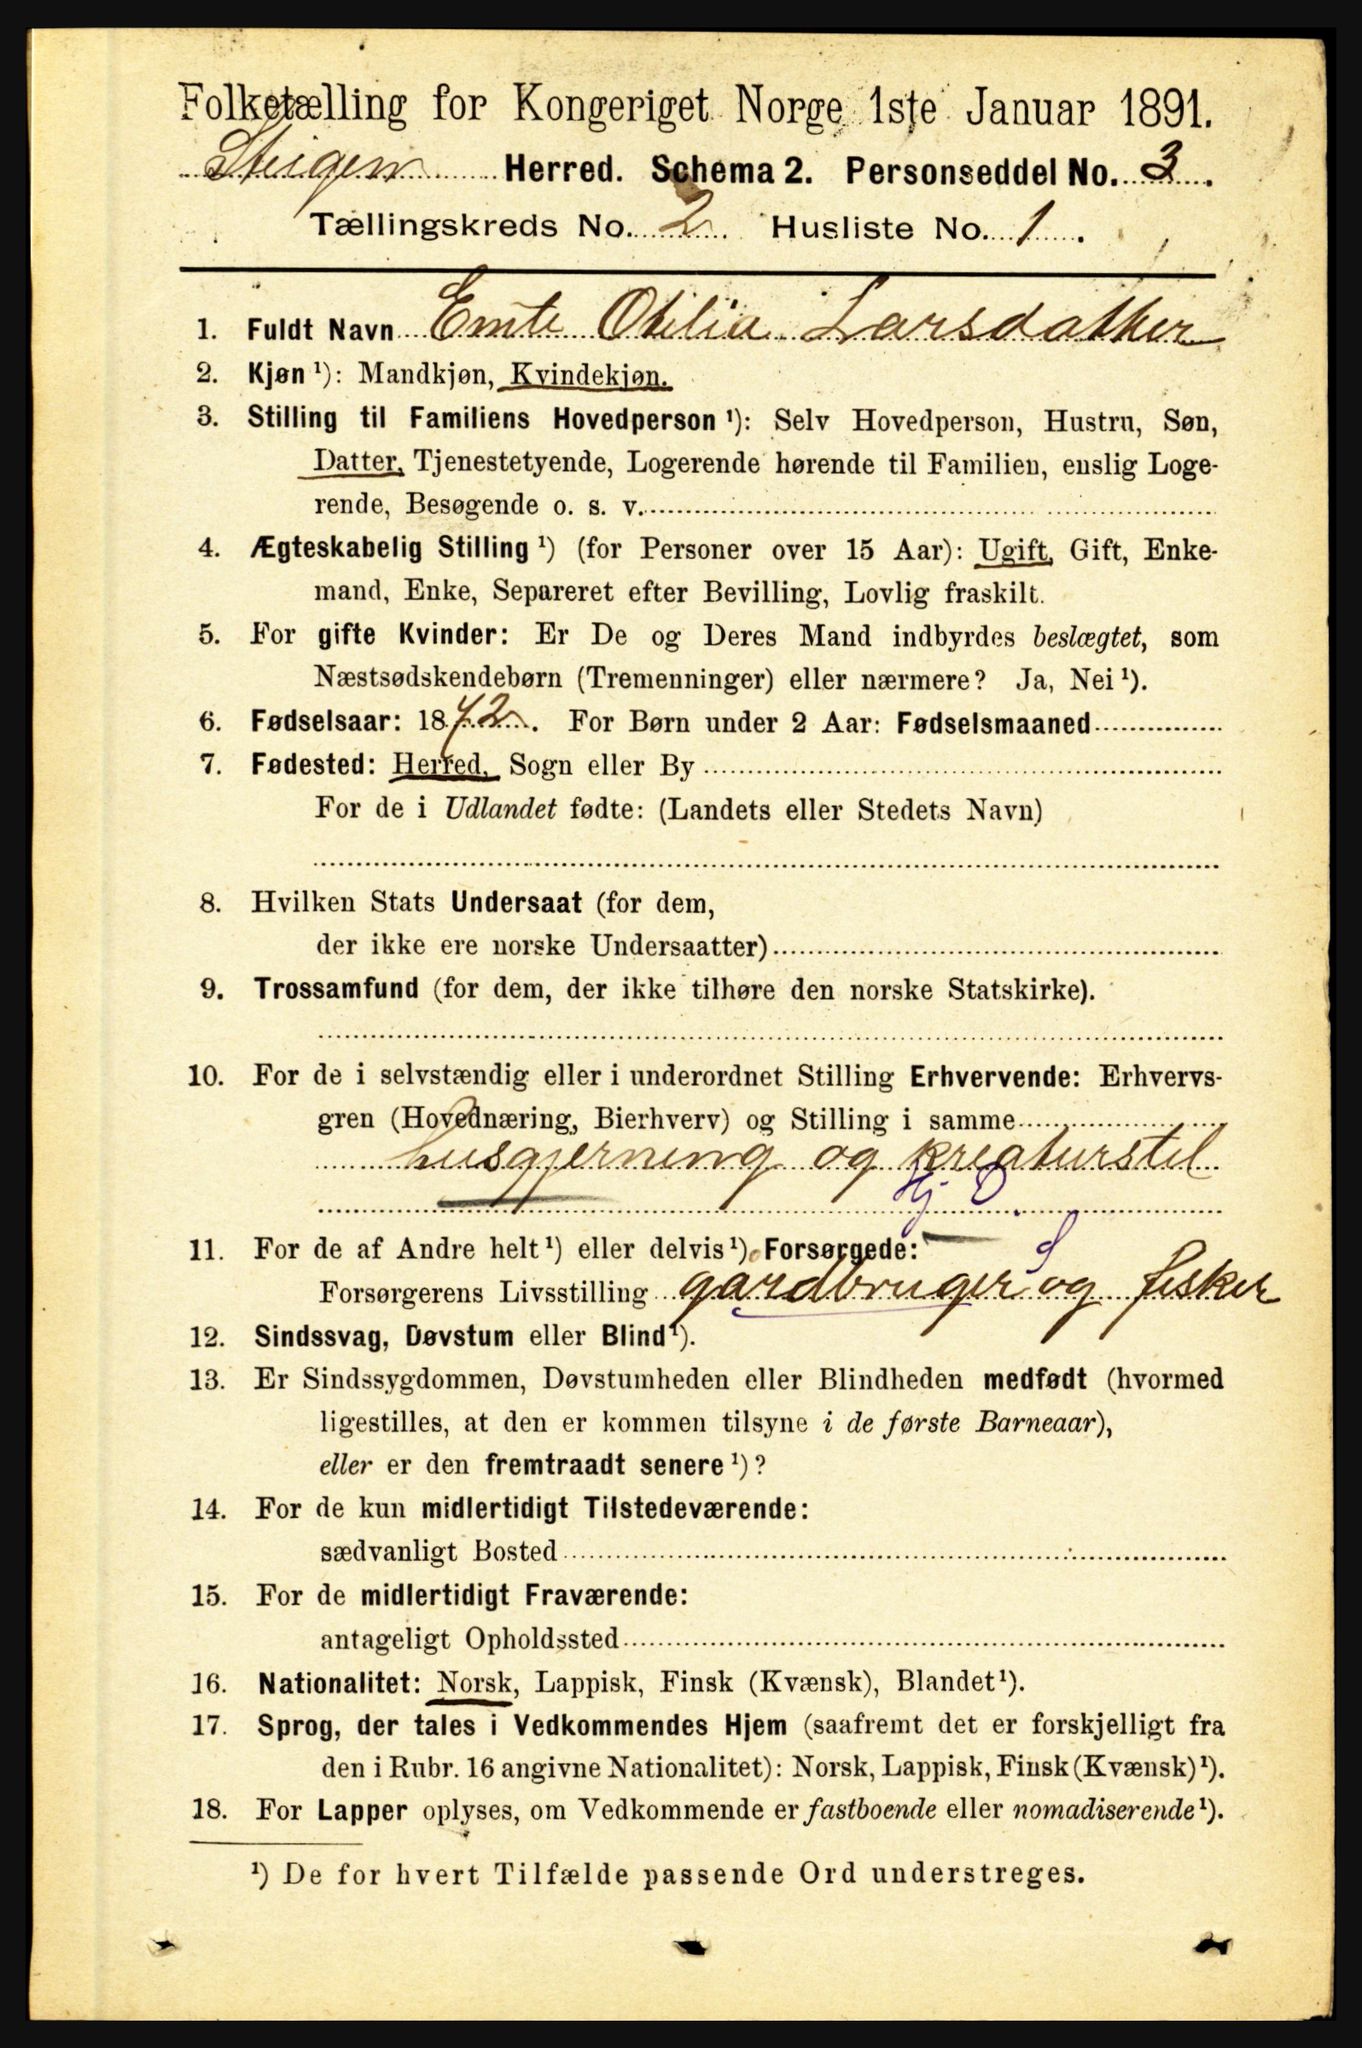 Folketælling for Kongeriget Norge 1ste Januar 1891.
Steigen Herred. Schema 2. Personseddel No. 3.
Tællingskreds No. 2. Husliste No. 1.
1. Fuldt Navn Emte Otilia Larsdatter
2. Kjøn ¹): Mandkjøn, Kvindekjøn.
3. Stilling til Familiens Hovedperson ¹): Selv Hovedperson, Hustru, Søn,
Datter, Tjenestetyende, Logerende hørende til Familien, enslig Loge-
rende, Besøgende o. s. v.
4. Ægteskabelig Stilling ¹) (for Personer over 15 Aar): Ugift, Gift, Enke-
mand, Enke, Separeret efter Bevilling, Lovlig fraskilt.
5. For gifte Kvinder: Er De og Deres Mand indbyrdes beslægtet, som
Næstsødskendebørn (Tremenninger) eller nærmere? Ja, Nei ¹).
6. Fødselsaar: 1872. For Børn under 2 Aar: Fødselsmaaned
7. Fødested: Herred, Sogn eller By
For de i Udlandet fødte: (Landets eller Stedets Navn)
8. Hvilken Stats Undersaat (for dem,
der ikke ere norske Undersaatter)
9. Trossamfund (for dem, der ikke tilhøre den norske Statskirke).
10. For de i selvstændig eller i underordnet Stilling Erhvervende: Erhvervs-
gren (Hovednæring, Bierhverv) og Stilling i samme
husgjerning og kreaturstel
Hj D.
11. For de af Andre helt ¹) eller delvis ¹) Forsørgede: S
Forsørgerens Livsstilling gardbruger og fisker
12. Sindssvag, Døvstum eller Blind ¹).
13. Er Sindssygdommen, Døvstumheden eller Blindheden medfødt (hvormed
ligestilles, at den er kommen tilsyne i de første Barneaar),
eller er den fremtraadt senere ¹)?
14. For de kun midlertidigt Tilstedeværende:
sædvanligt Bosted
15. For de midlertidigt Fraværende:
antageligt Opholdssted
16. Nationalitet: Norsk, Lappisk, Finsk (Kvænsk), Blandet ¹).
17. Sprog, der tales i Vedkommendes Hjem (saafremt det er forskjelligt fra
den i Rubr. 16 angivne Nationalitet): Norsk, Lappisk, Finsk (Kvænsk) ¹).
18. For Lapper oplyses, om Vedkommende er fastboende eller nomadiserende ¹).
¹) De for hvert Tilfælde passende Ord understreges.